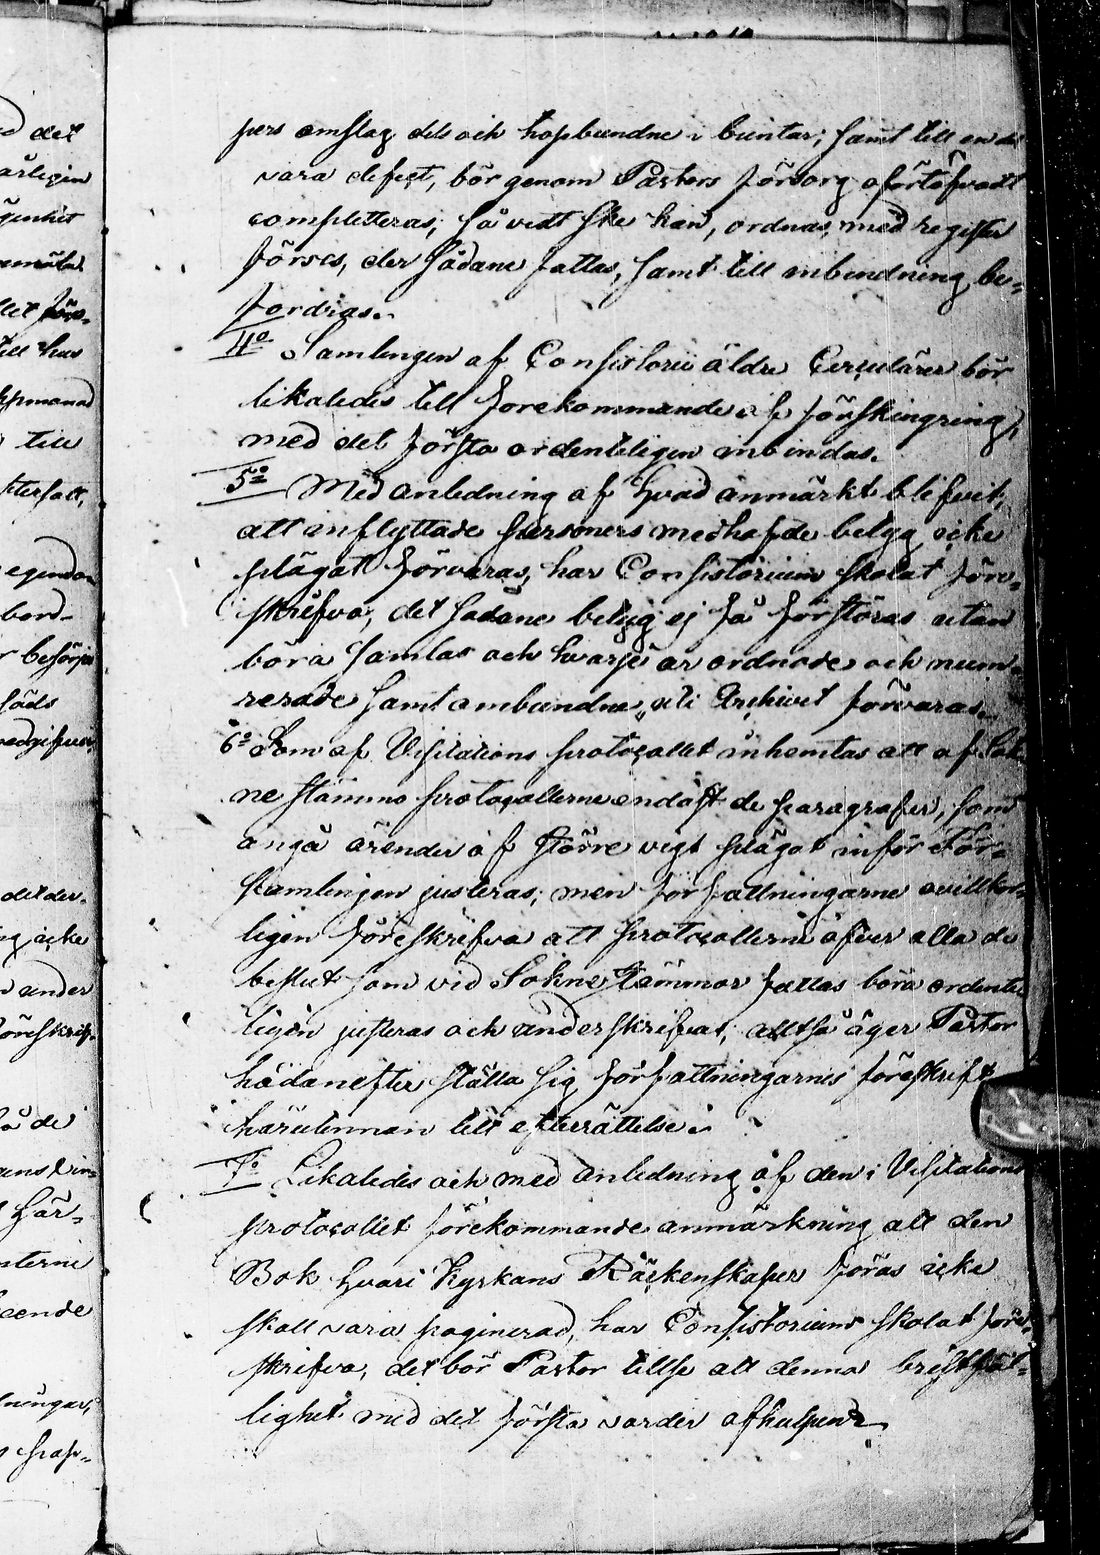 det
årligen
till hus
till
efterfalt,
egendom
bord-
beförja
det der-
ng icke
under
föreskrif-
å de
här-
eende
pers omslag dels och hopbundne i buntar; samt till en del
vara defect, bör genom Pastors försorg ofördröjeligen
completteras, så vidt ske kan, ordnas, med register
förses, der sådane fattas, samt till inbindning be-
fordras.
4o Samlingen af Consistorii äldre Circulärer bör
likaledes till förekommande af förskingring,
med det första ordenteligen inbindas.
5o Med anledning af hvad anmärkt blifvit,
att inflyttade personers medhafde betyg icke
plägat förvaras, har Consistorium skolat före-
skrifva, det sådane betyg ej få förstöras utan
böra samlas och hvarje år ordnade och num-
rerade samt ombundne, uti Archivet förvaras.
6o Som af Visitations protocollet inhemtas att af Sok-
ne stämmo protocollerne endast de paragrafer, som
angå ärender af större vigt plägat inför För-
samlingen justeras; men författningarne ovillkor-
ligen föreskrifva att protocollerne öfver alla de
beslut som vid Sokne Stämmor fattas böra ordente-
ligen justeras och underskrifvas; alltså äger Pastor
hädanefter ställa sig författningarnes föreskrift
härutinnan till efterrättelse.
7o Likaledes och med anledning af den i Visitations
protocollet förekommande anmärkning att den
Bok hvari Kyrkans Räkenskaper föras icke
skall vara paginerad, har Consistorium skolat före-
skrifva, det bör Pastor tillse att denna bristfäl-
lighet med det första varder afhulpen.